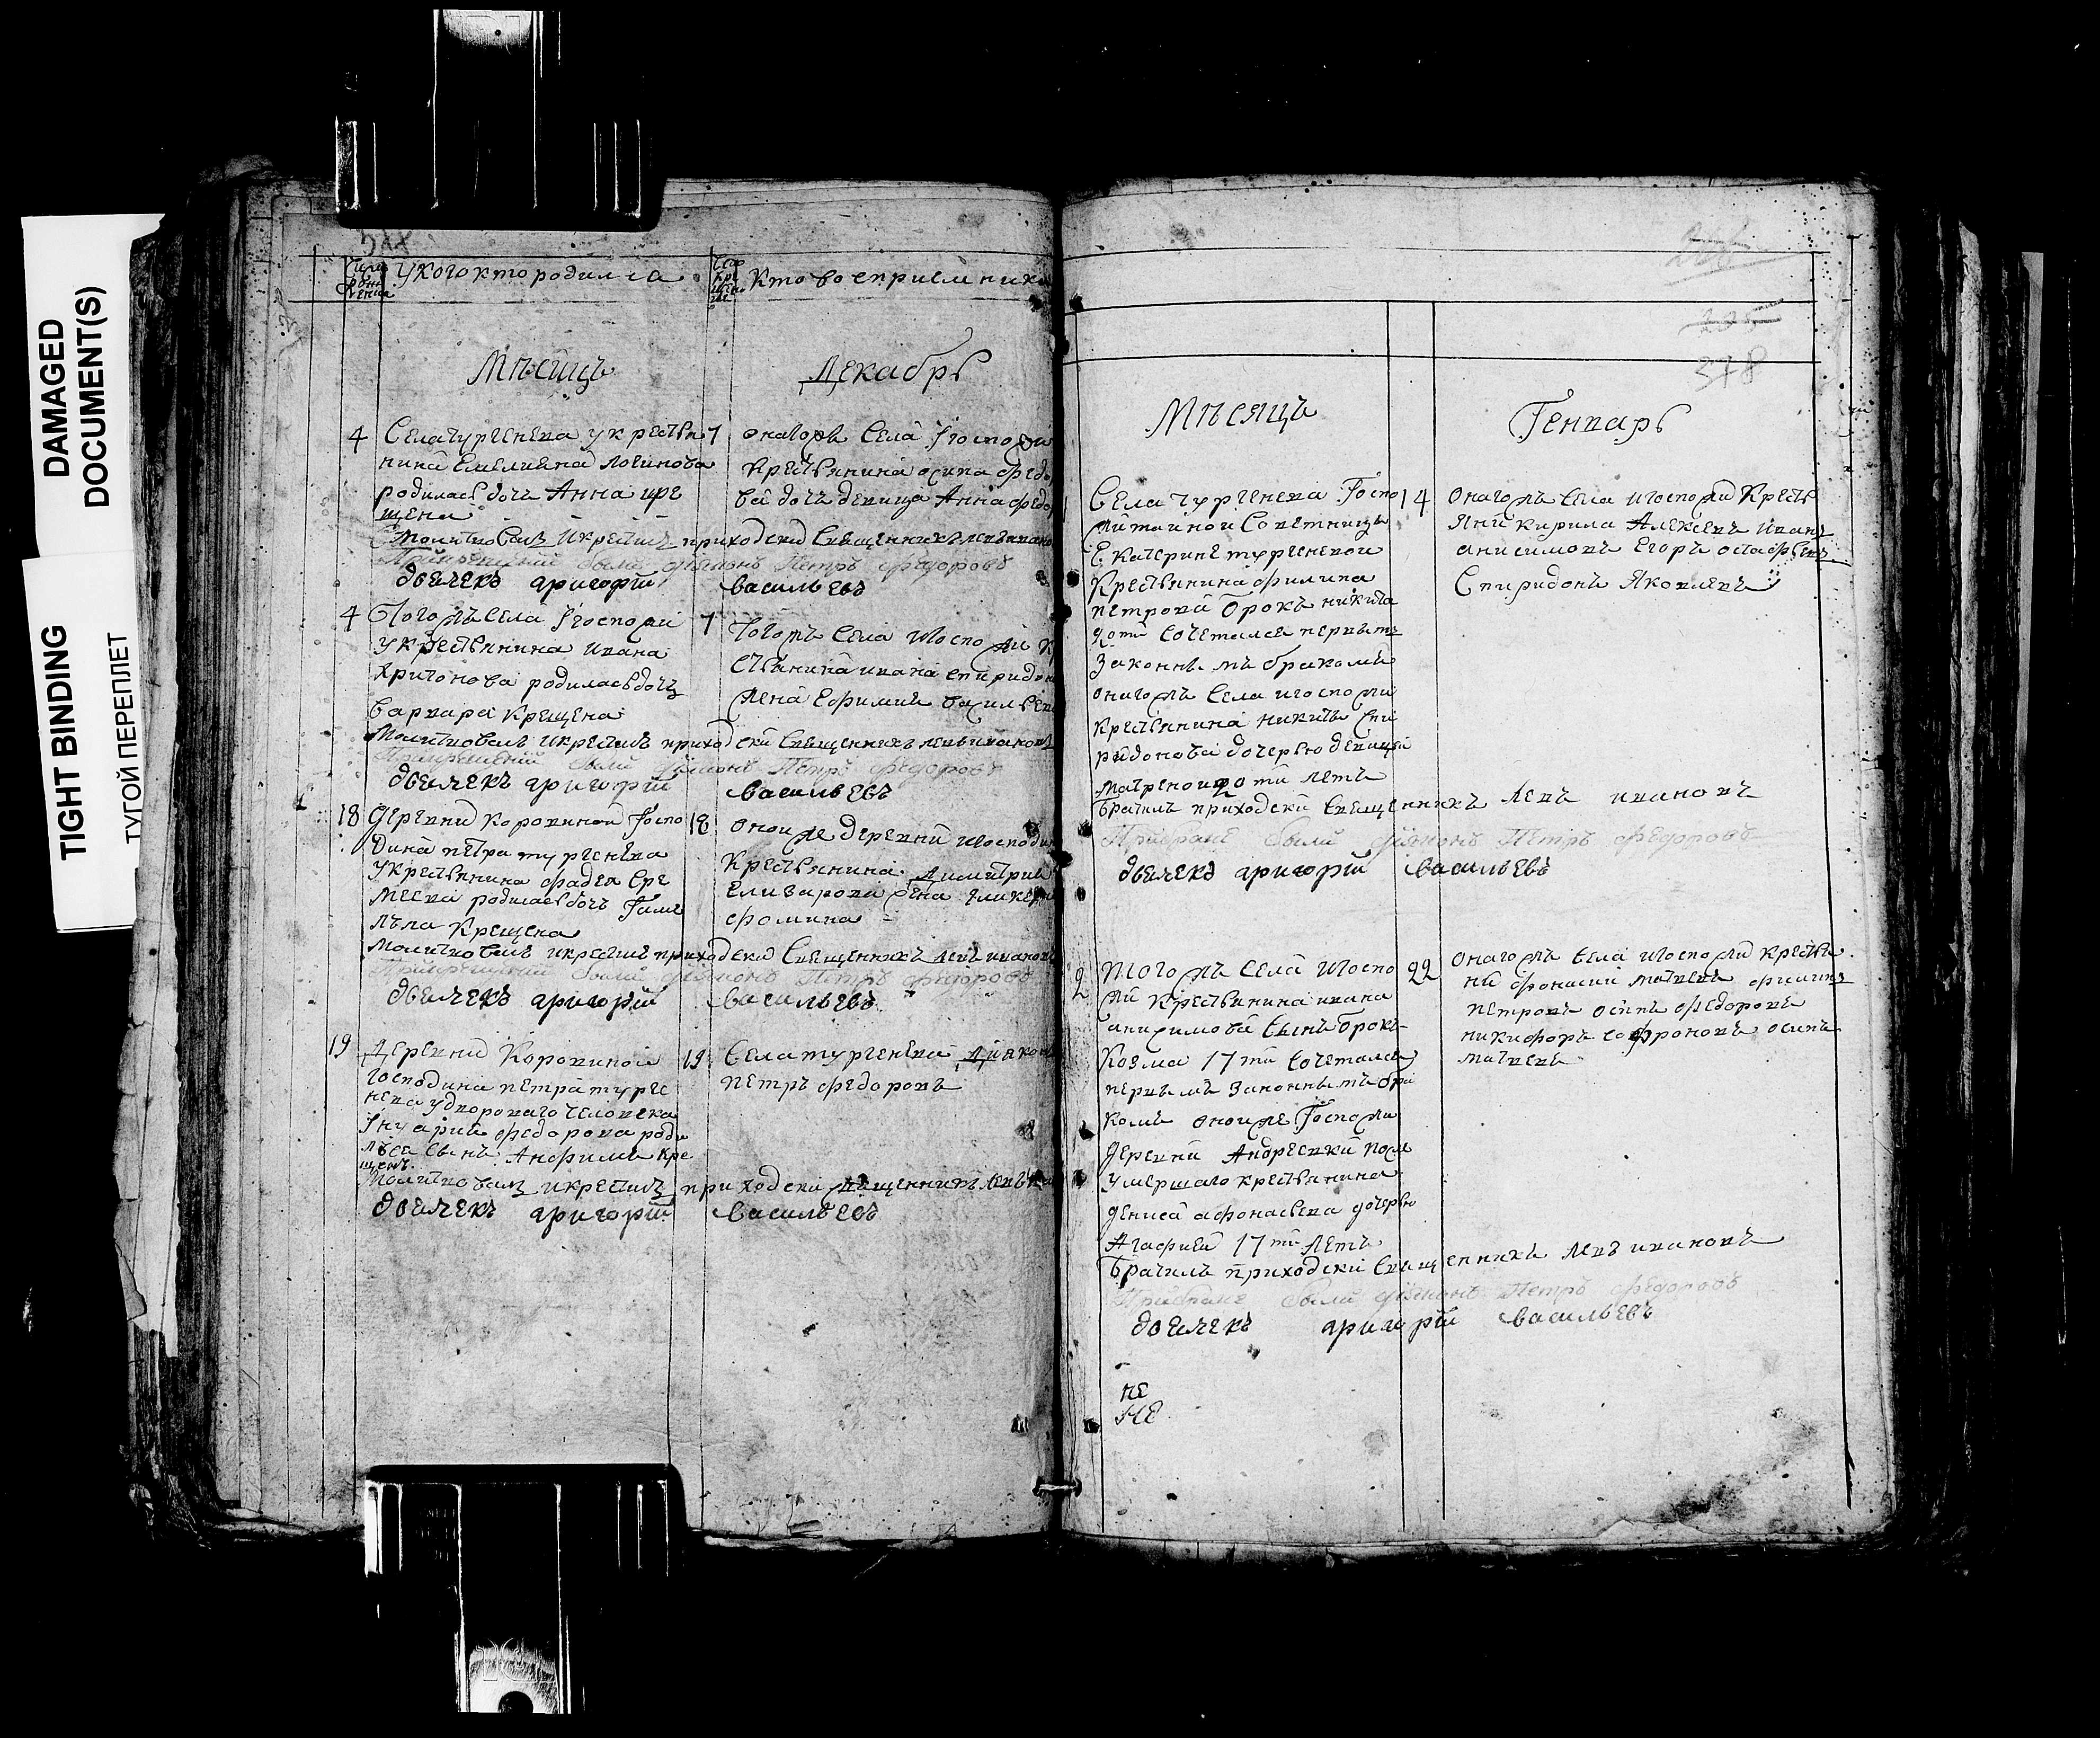 DAMAGED
DOCUMENT(S)
TIGHT BINDING
ТУГОЙ ПЕРЕПЛЕТ
У кого кто родился
Кто восприемники
Мѣсяцъ
Декабрь
4
Села тургенева у крестья
нина Емелияна логинова
родиласъ дочь Анна кре
щена
7
онагожъ села Госпожи
крестьянина осипа федо
ва дочь девица Анна федо
Молитвовалъ и крестилъ приходски священникъ левъ ивано
при крещении были дияконъ Петръ федоровъ
дьячекъ григорiй васильевъ
4
Тогожъ села Госпожи
у крестьянина ивана
харитонова родиласъ дочь
варвара крещена
7
Тогожъ села и госпожи кр
стьянина ивана спиридон
жена Ефимия василье
Молитвовалъ и крестилъ приходски священникъ левъ ивановъ
при крещении были дияконъ Петръ федоровъ
дьячекъ григорiй васильевъ
18
деревни коровиной Госпо
дина петра тургенева
у крестьянина фадея Ере
меева родиласъ дочь
крещена
18
оной же деревни и господин
крестьянина Димитрия
Елизарова жена
фомина
Молитвовалъ и крестилъ приходски священникъ левъ иванов
при крещении были дияконъ Петръ федоровъ
дьячекъ григорiй васильевъ
19
Деревни Коровиной
господина петра турге
нева у дворового человека
федорова роди
лъся сынъ Анфимъ кре
щенъ
19
Села тургенева Дияконъ
петръ федоровъ
Молитвовалъ и крестилъ приходски священникъ левъ
дьячекъ григорiй васильевъ
378
Мѣсяцъ
Генварь
Села тургенева Госпо
жи тайной советницы
Екатерине тургеневой
крестьянина филипа
петрова отрокъ никита
сочетался первымъ
законнымъ бракомъ
онагожъ села и госпожи
крестьянина никиты спи
ридонова дочерью девицей
матреной 20 ти летъ
14
онагожъ села и госпожи крестья
яни кирила Алексевъ иванъ
анисимовъ Егоръ остафьевъ
Спиридонъ Яковлевъ
Брачилъ приходски священникъ левъ ивановъ
при браке были дияконъ Петръ федоровъ
дьячекъ григорiй васильевъ
2
Тогожъ села и госпо
жи крестьянина ивана
анисимова сынъ отрокъ
Козма 17 ти сочетался
первымъ законнымъ бра
комъ оной же Госпожи
деревни Андреевки посл
умершаго крестьянина
дениса афонасьева дочерью
Агафией 17 ти летъ
22
онагожъ села и госпожи крестья
ни афонасий матвевъ филипъ
петровъ осипъ федоровъ
никифоръ софроновъ осипъ
матвевъ
Брачилъ приходски священникъ левъ ивановъ
при браке были дияконъ Петръ федоровъ
дьячекъ григорiй васильевъ